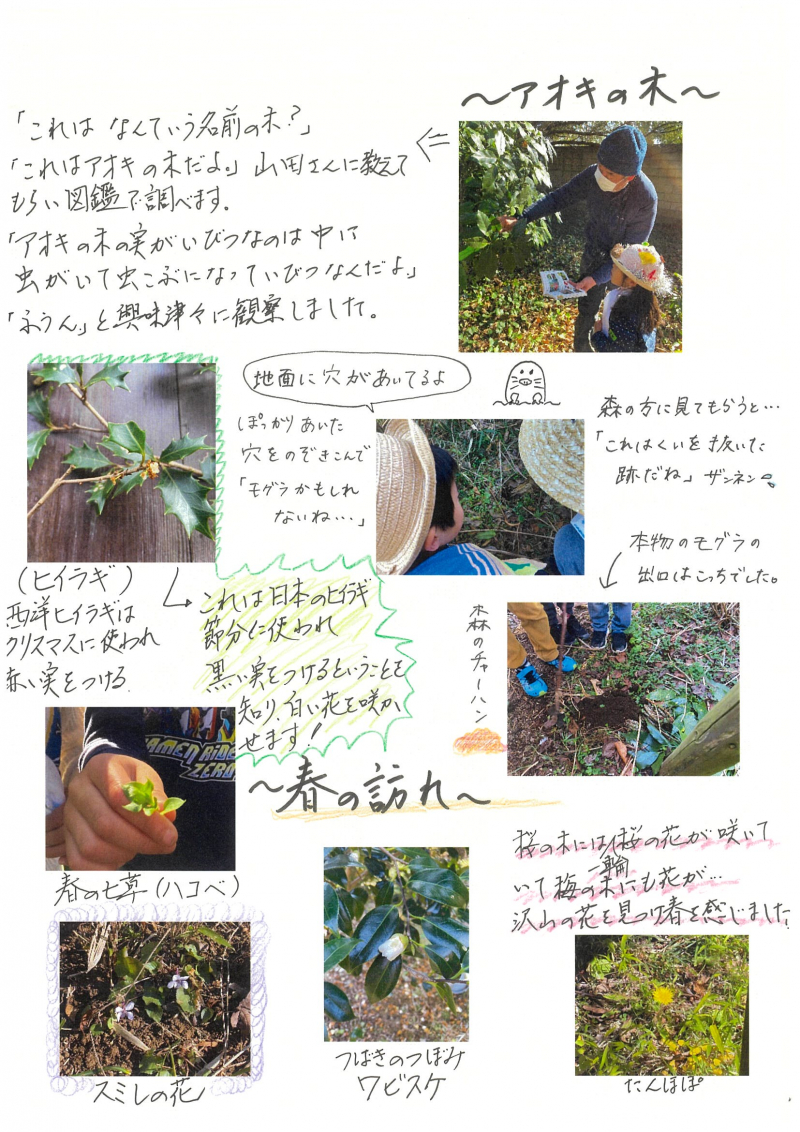 ～アオキの木～
「これは なんていう名前の木？」
「これはアオキの木だよ。」山田さんに教えて
もらい図鑑で調べます。
「アオキの木の実がいびつなのは中に
虫がいて虫こぶになっていびつなんだよ」
「ふうん。」と興味津々に観察しました。
地面に穴があいてるよ
ぽっかりあいた
穴をのぞきこんで
「モグラかもしれ
ないね…」
森の方に見てもらうと…
「これはくいを抜いた
跡だね」ザンネン
本物のモグラの
出口はこっちでした。
(ヒイラギ)
西洋ヒイラギは
クリスマスに使われ
赤い実をつける
これは日本のヒイラギ
節分に使われ
黒い実をつけるということを
知り、白い花を咲か
せます！
森のチャーハン
KAMEN RIDER
ZERO
～春の訪れ～
春の七草(ハコベ)
桜の木には一輪桜の花が咲いて
いて梅の木にも花が…
沢山の花を見つけ春を感じました
スミレの花
つばきのつぼみ
ワビスケ
たんぽぽ